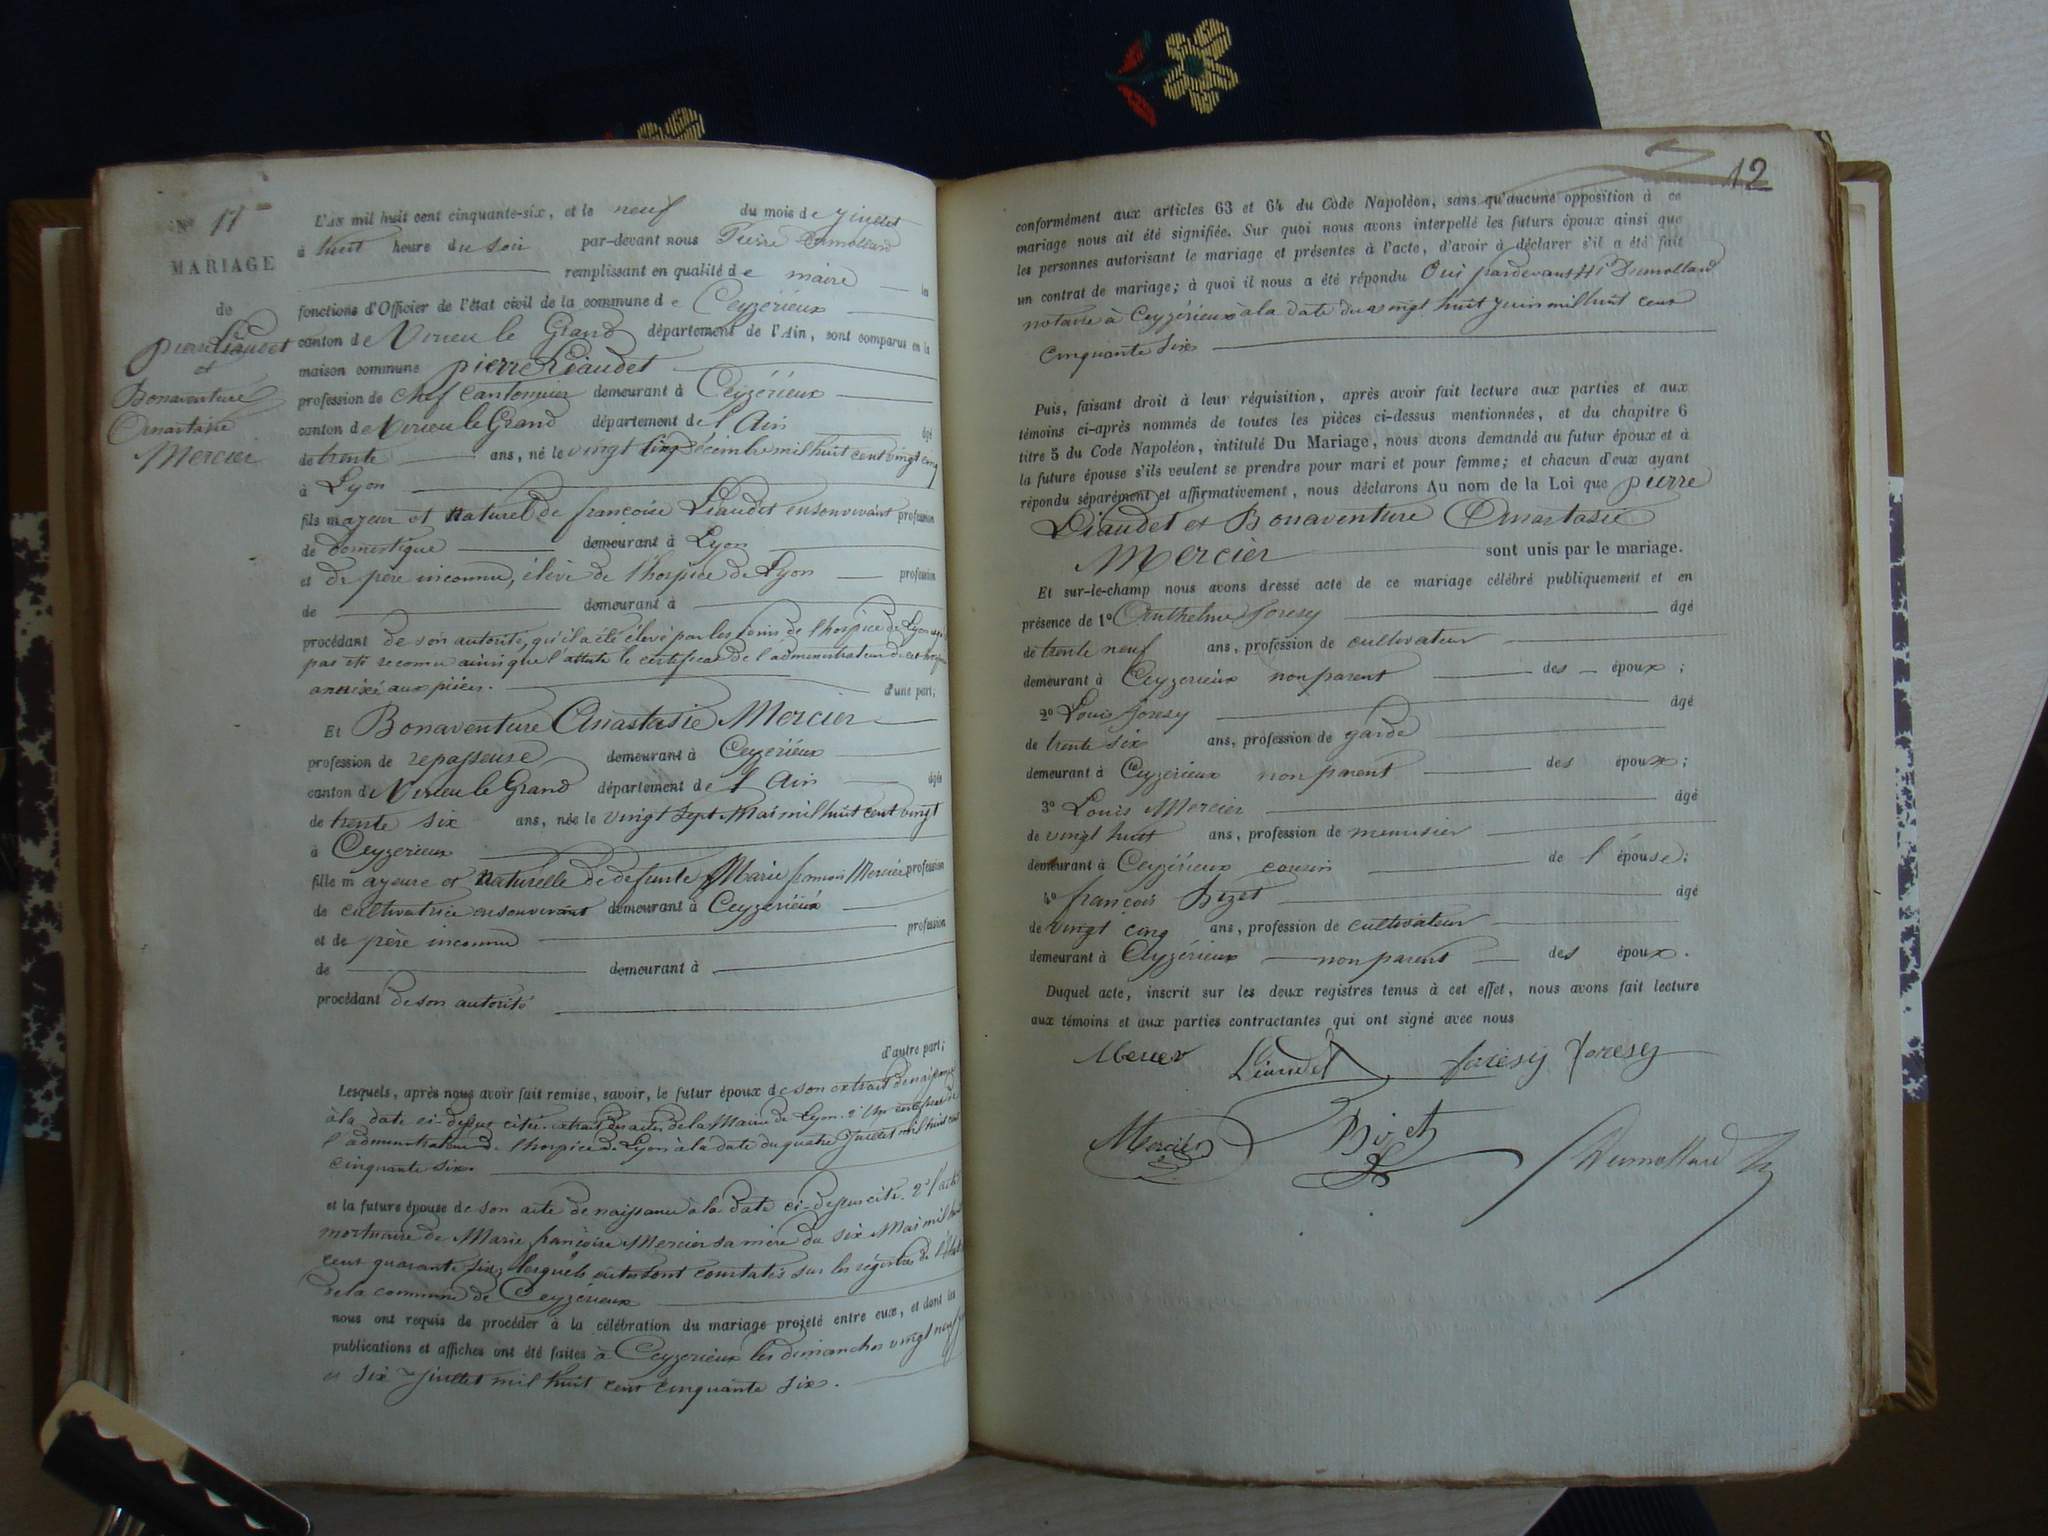 N° 11
MARIAGE
de
pierre Liaudet
et
Bonaventure
Anastasie
Mercier
L'An mil huit cent cinquante-six, et le neuf du mois de juillet
à huit heure du soir par-devant nous Pierre Dumollard
remplissant en qualité de maire les
fonctions d'Officier de l'état civil de la commune de Ceyzérieux
canton de Virieu le Grand département de l'Ain, sont comparus en la
maison commune pierre Liaudet
profession de chef Cantonnier demeurant à Ceyzérieux
canton de Virieu le Grand département de l'Ain âgé
de trente ans, né le vingt cinq Décembre mil huit cent vingt cinq
à Lyon
fils majeur et naturel de françoise Liaudet en son vivant profession
de domestique demeurant à Lyon
et de père inconnu, élève de l'hospice de Lyon profession
de demeurant à
procédant de son autorité, qu'il a été élevé par les soins de l'hospice de Lyon
pas été reconnu ainsi que l'atteste le certificat de l'administrateur de cet hospice
annéxé aux pièces. d'une part;
Et Bonaventure Anastasie Mercier
profession de repasseuse demeurant à Ceyzérieux
canton de Virieu le Grand département de l'Ain âgée
de trente six ans, née le vingt sept Mai mil huit cent vingt
à Ceyzerieux
fille majeure et naturelle de defunte Marie françoise Mercier profession
de cultivatrice en son vivant demeurant à Ceyzerieux
et de père inconnu profession
de demeurant à
procédant de son autorité
d'autre part;
Lesquels, après nous avoir fait remise, savoir, le futur époux de son extrait de naissance
à la date ci-dessus cité extrait des actes de la Mairie de Lyon. 2° Un certificat de
l'administrateur de l'hospice de Lyon à la date du quatre Juillet mil huit cent
cinquante six.
et la future épouse de son acte de naissance à la date ci-dessus cité. 2° l'acte
mortuaire de Marie françoise Mercier sa mère du six Mai mil huit
cent quarante six, lesquels actes sont constatés sur les régistres de l'état
de la commune de Ceyzerieux
nous ont requis de procéder à la célébration du mariage projeté entre eux, et dont les
publications et affiches ont été faites à Ceyzerieux les dimanches vingt neuf
et six juillet mil huit cent cinquante six.
12
conformément aux articles 63 et 64 du Code Napoléon, sans qu'aucune opposition à ce
mariage nous ait été signifiée. Sur quoi nous avons interpellé les futurs époux ainsi que
les personnes autorisant le mariage et présentes à l'acte, d'avoir à déclarer s'il a été fait
un contrat de mariage; à quoi il nous a été répondu Oui pardevant Me Dumollard
notaire à Ceyzérieux à la date du vingt huit Juin mil huit cent
cinquante six
Puis, faisant droit à leur réquisition, après avoir fait lecture aux parties et aux
témoins ci-après nommés de toutes les pièces ci-dessus mentionnées, et du chapitre 6
titre 5 du Code Napoléon, intitulé Du Mariage, nous avons demandé au futur époux et à
la future épouse s'ils veulent se prendre pour mari et pour femme; et chacun d'eux ayant
répondu séparément et affirmativement, nous déclarons Au nom de la Loi que pierre
Liaudet et Bonaventure Anastasie
Mercier sont unis par le mariage.
Et sur-le-champ nous avons dressé acte de ce mariage célébré publiquement et en
présence de 1° Anthelme foresy âgé
de trente neuf ans, profession de cultivateur
demeurant à Ceyzerieux non parent des époux;
2° Louis foresy âgé
de trente six ans, profession de garde
demeurant à Ceyzerieux non parent des époux;
3° Louis Mercier âgé
de vingt huit ans, profession de menuisier
demeurant à Ceyzérieux cousin de l'épouse;
4° françois Bizet âgé
de vingt cinq ans, profession de cultivateur
demeurant à Ceyzérieux non parent des époux.
Duquel acte, inscrit sur les deux registres tenus à cet effet, nous avons fait lecture
aux témoins et aux parties contractantes qui ont signé avec nous
Liaudet foresy foresy
Mercier Bizet Dumollard